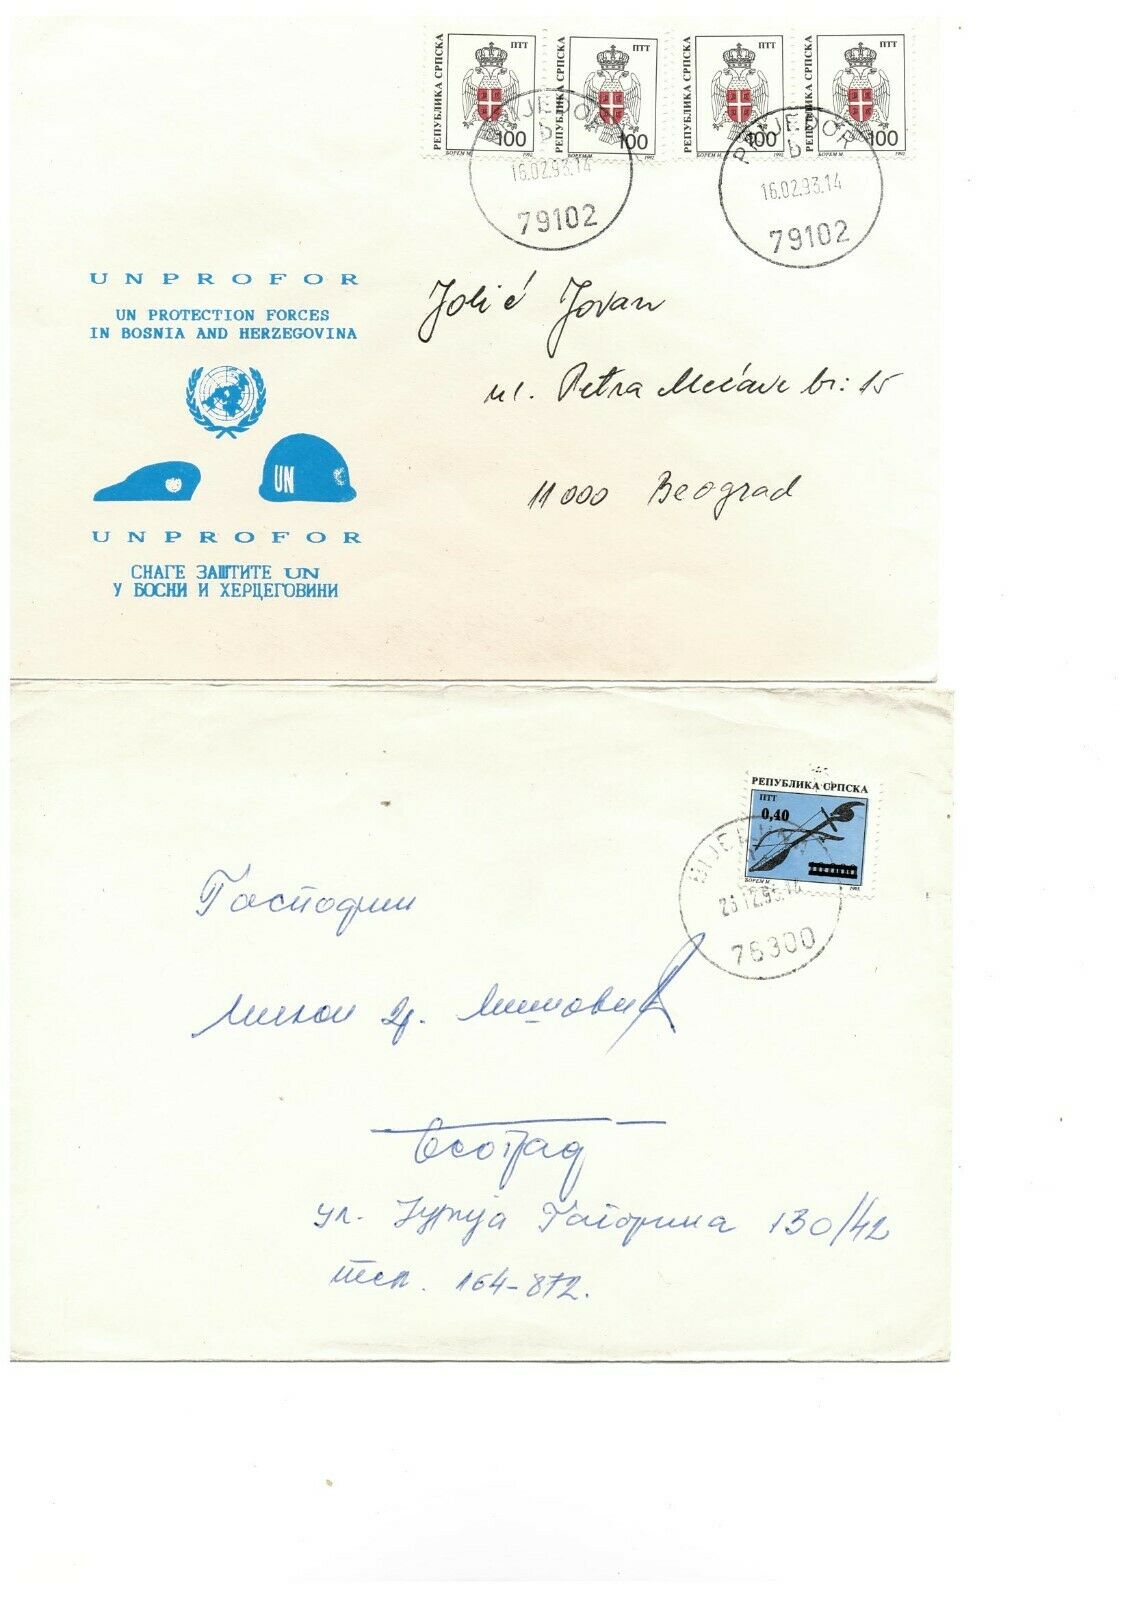 РЕПУБЛИКА СРПСКА
ПТТ
100
БОРЕМ М.
1992
РЕПУБЛИКА СРПСКА
ПТТ
100
БОРЕМ М.
1992
РЕПУБЛИКА СРПСКА
ПТТ
100
БОРЕМ М.
1992
РЕПУБЛИКА СРПСКА
ПТТ
100
БОРЕМ М.
1992
PRIJEDOR
b
16.02.93.14
79102
PRIJEDOR
b
16.02.93.14
79102
UNPROFOR
UN PROTECTION FORCES
IN BOSNIA AND HERZEGOVINA
UN
UNPROFOR
СНАГЕ ЗАШТИТЕ UN
У БОСНИ И ХЕРЦЕГОВИНИ
Jolić Jovan
ul. Petra Mećave br: 15
11000 Beograd
РЕПУБЛИКА СРПСКА
ПТТ
0,40
БОРЕМ М.
1993
76300
Господин
др.
Београд
ул. Јурија Гагарина 130/42
тел. 164-872.